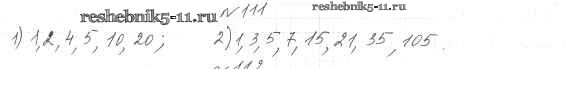 reshebnik5-11.ru №111 reshebnik5-11.ru
1) 1,2,4,5,10,20; 2) 1,3,5,7,15,21,35,105.